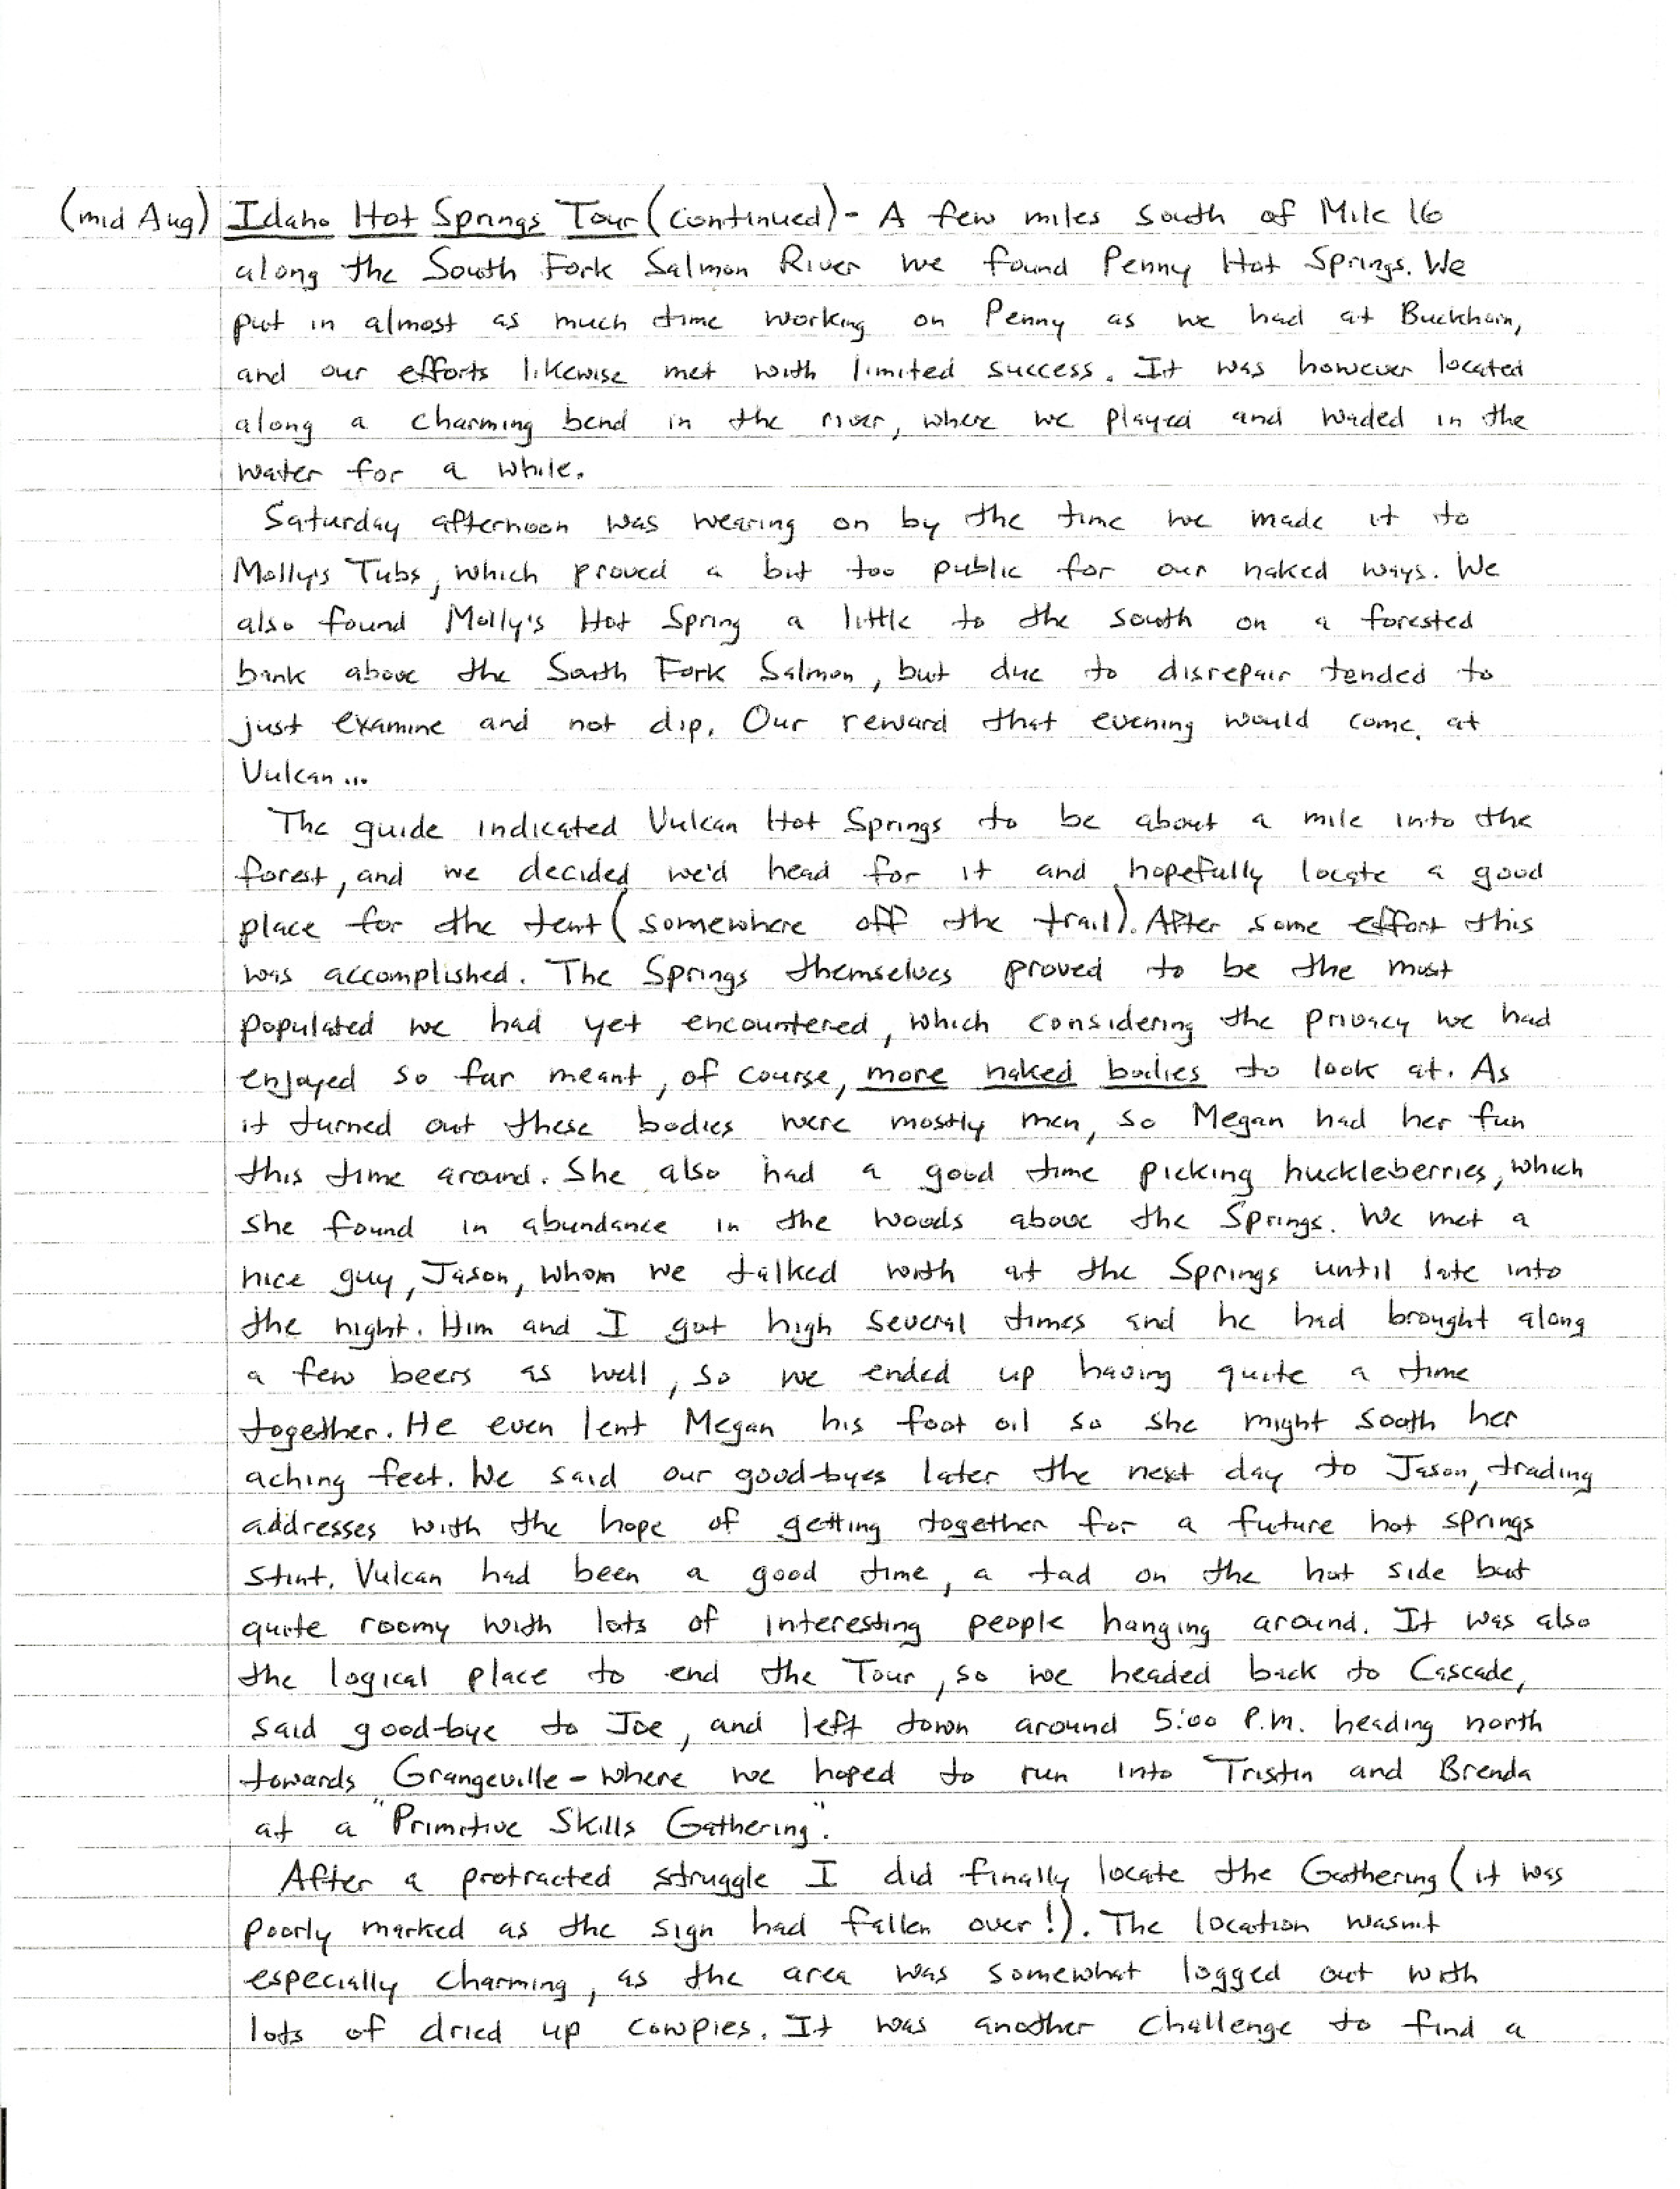 (mid Aug) Idaho Hot Springs Tour (continued) - A few miles south of Mile 16
along the South Fork Salmon River we found Penny Hot Springs. We
put in almost as much time working on Penny as we had at Buckhorn,
and our efforts likewise met with limited success. It was however located
along a charming bend in the river, where we played and waded in the
water for a while.
Saturday afternoon was wearing on by the time we made it to
Molly's Tubs, which proved a bit too public for our naked ways. We
also found Molly's Hot Spring a little to the south on a forested
bank above the South Fork Salmon, but due to disrepair tended to
just examine and not dip. Our reward that evening would come at
Vulcan...
The guide indicated Vulcan Hot Springs to be about a mile into the
forest, and we decided we'd head for it and hopefully locate a good
place for the tent (somewhere off the trail). After some effort this
was accomplished. The Springs themselves proved to be the most
populated we had yet encountered, which considering the privacy we had
enjoyed so far meant, of course, more naked bodies to look at. As
it turned out these bodies were mostly men, so Megan had her fun
this time around. She also had a good time picking huckleberries, which
she found in abundance in the woods above the Springs. We met a
nice guy, Jason, whom we talked with at the Springs until late into
the night. Him and I got high several times and he had brought along
a few beers as well, so we ended up having quite a time
together. He even lent Megan his foot oil so she might sooth her
aching feet. We said our good-byes later the next day to Jason, trading
addresses with the hope of getting together for a future hot springs
stint. Vulcan had been a good time, a tad on the hot side but
quite roomy with lots of interesting people hanging around. It was also
the logical place to end the Tour, so we headed back to Cascade,
said good-bye to Joe, and left town around 5:00 P.M. heading north
towards Grangeville - where we hoped to run into Tristin and Brenda
at a "Primitive Skills Gathering".
After a protracted struggle I did finally locate the Gathering (it was
poorly marked as the sign had fallen over!). The location wasn't
especially charming, as the area was somewhat logged out with
lots of dried up cowpies. It was another challenge to find a